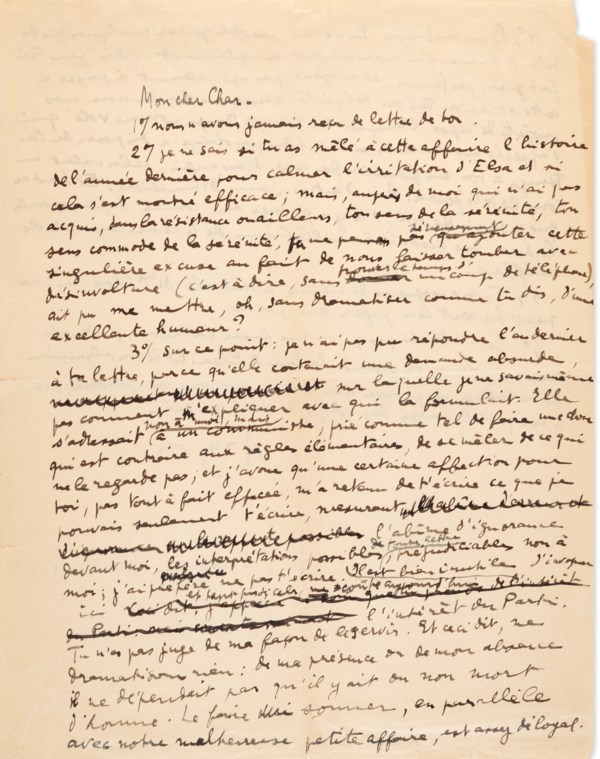 Mon cher Char.
1°/ nous n'avons jamais reçu de lettre de toi.
2°/ je ne sais si tu as mêlé à cette affaire l'histoire
de l'année dernière pour calmer l'irritation d'Elsa et si
cela s'est montré efficace ; mais, auprès de moi qui n'ai pas
acquis, dans la résistance ou ailleurs, ton sens de la sérénité, ton
sens commode de la sérénité, pas
qu'ajouter cette
singulière excuse au fait de nous laisser tomber avec
désinvolture (c'est à dire, sans un coup de téléphone),
ait pu me mettre, oh, sans dramatiser comme tu dis, d'une
excellente humeur ?
3°/ Sur ce point : je n'ai pas pu répondre l'an dernier
à ta lettre, parce qu'elle contenait une demande absurde,
sur laquelle je ne savais même
pas comment m'expliquer avec qui la formulait. Elle
s'adressait non à moi, mais
à un communiste, prié comme tel de faire une chose
qui est contraire aux règles élémentaires, de se mêler de ce qui
ne le regarde pas ; et j'avoue qu'une certaine affection pour
toi, pas tout à fait effacée, m'a retenu de t'écrire ce que je
pouvais seulement t'écrire, mesurant
l'abîme d'ignorance
devant moi, les interprétations possibles, de cette
préjudiciables non à
moi ; j'ai préféré ne pas t'écrire. Il est bien inutile d'invoquer
ici
l'intérêt du Parti.
Tu n'es pas juge de ma façon de le servir. Et ceci dit, ne
dramatisons rien : de ma présence ou de mon absence
il ne dépendait pas qu'il y ait ou non mort
d'homme. Le faire sonner, en parallèle
avec notre malheureuse petite affaire, est assez déloyal.